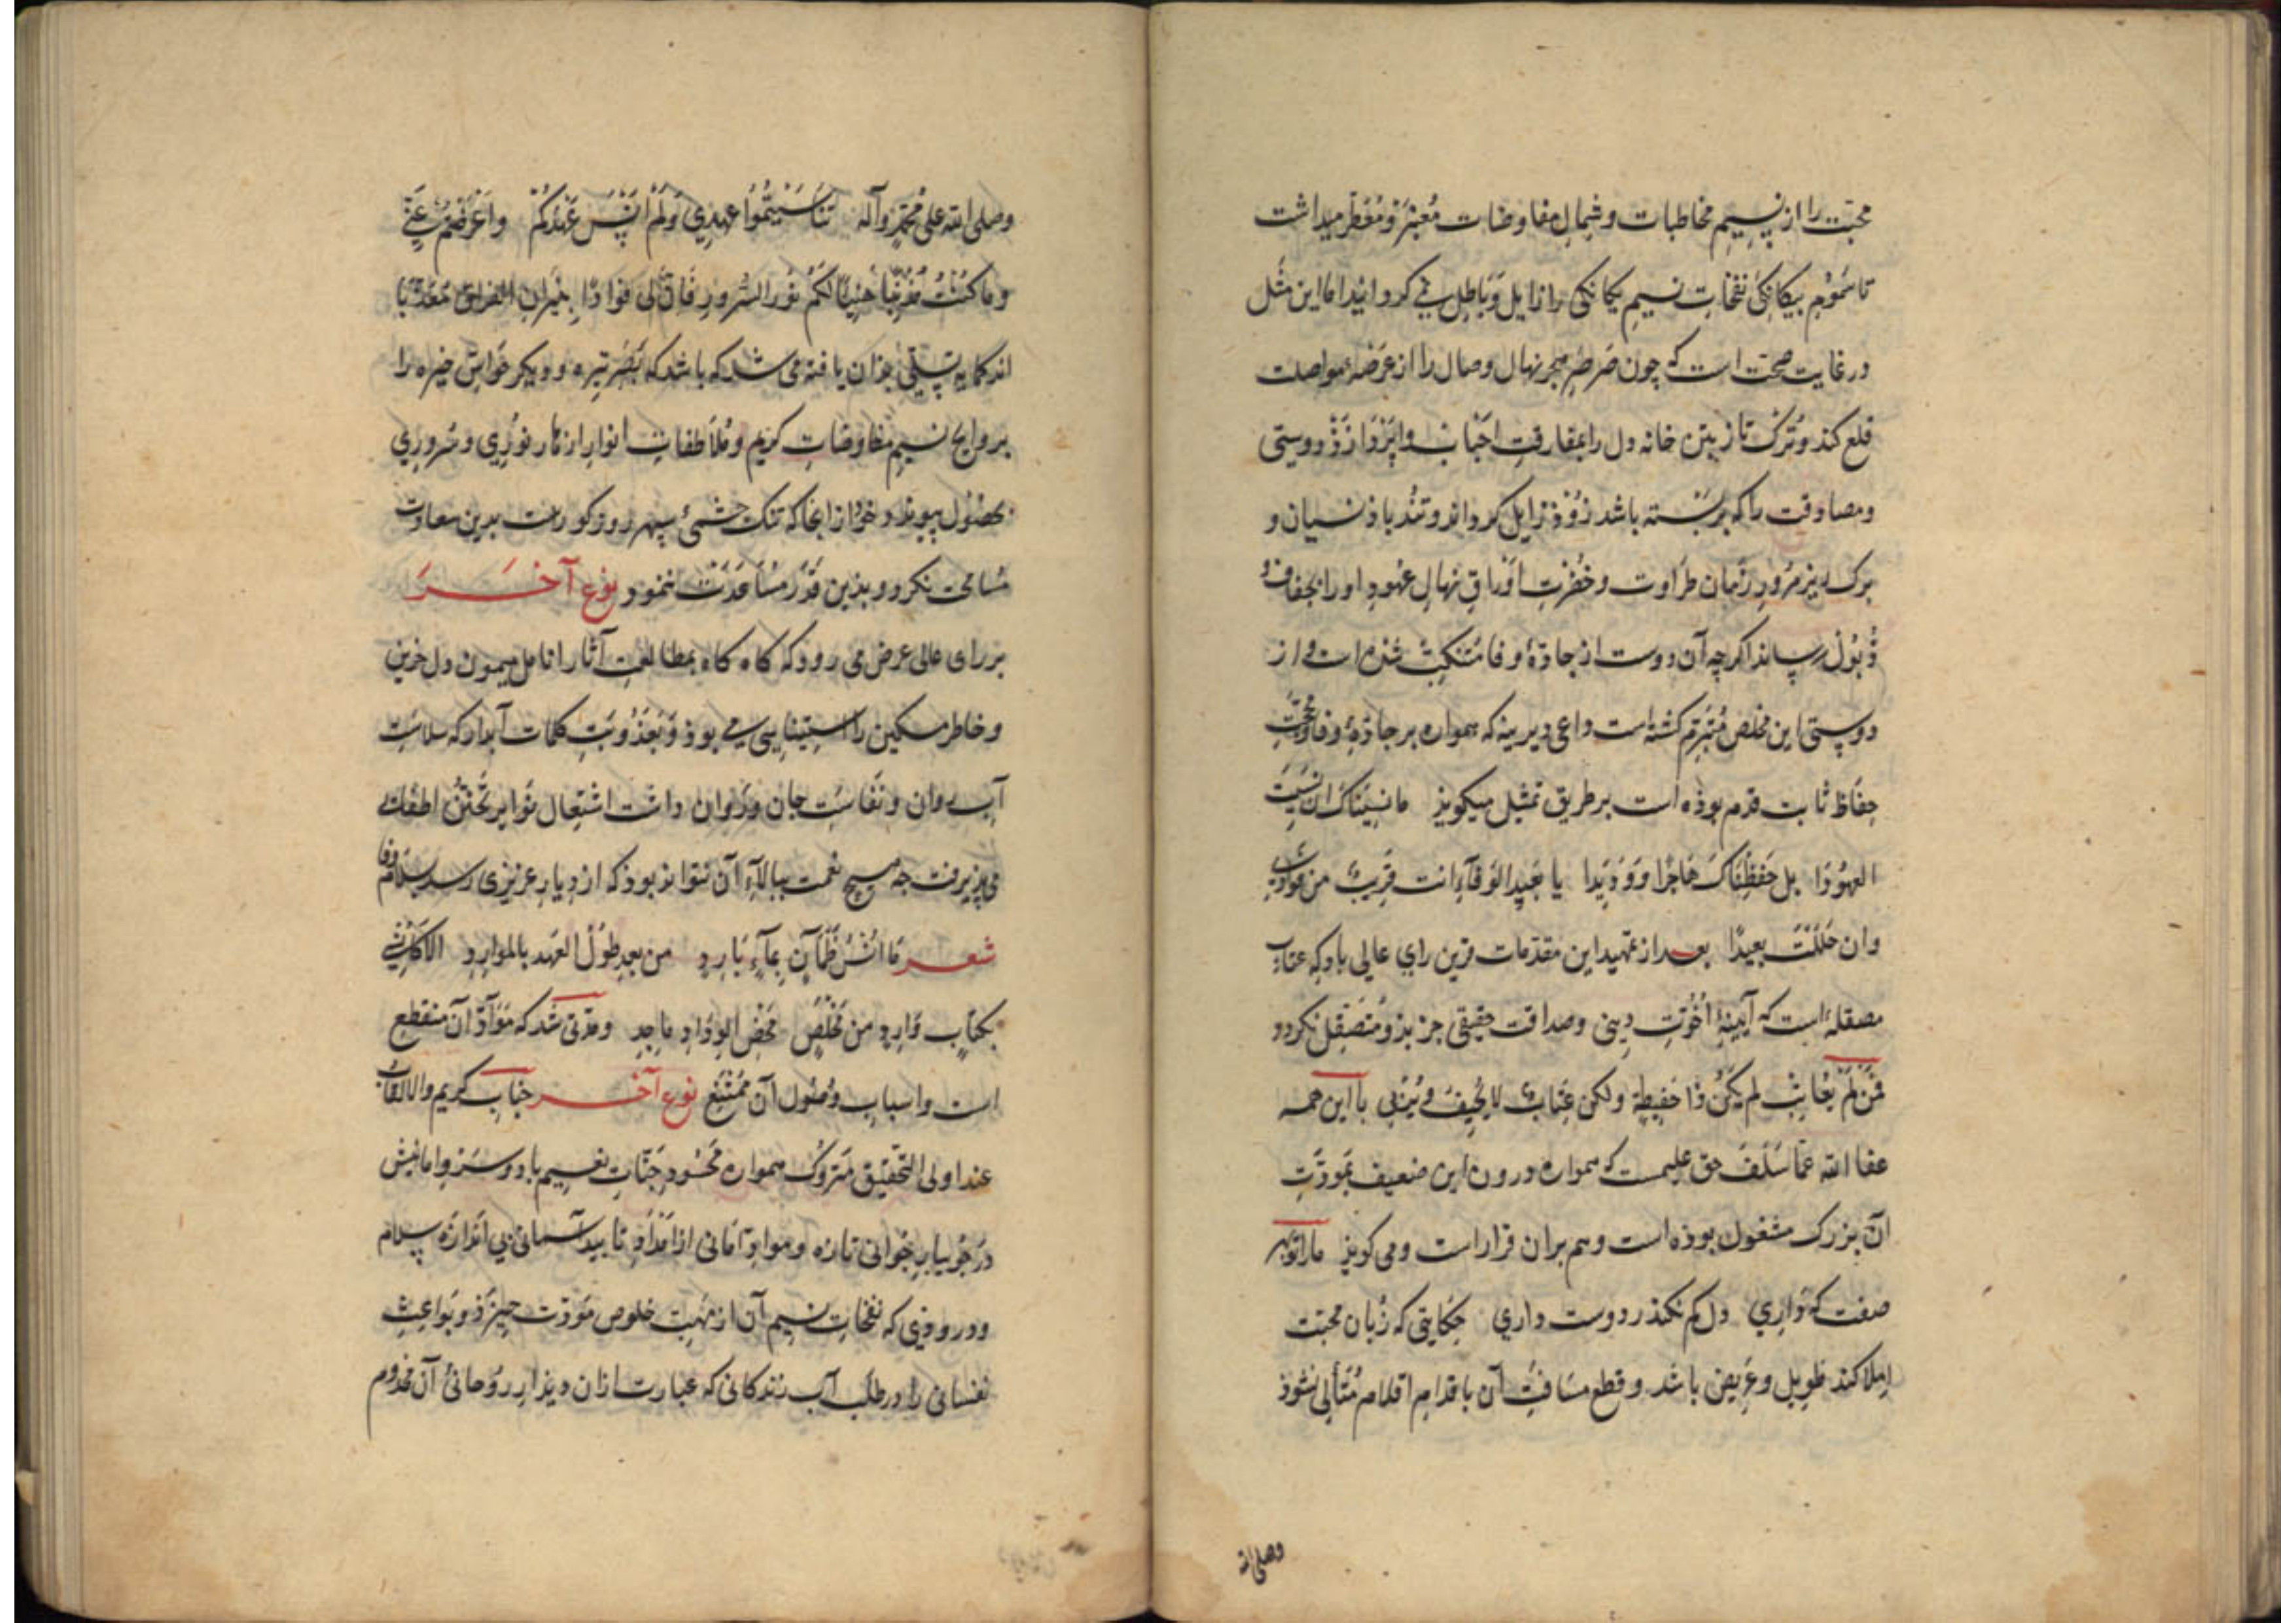 محبّت را از نسیم مخاطبات و شمال مفاوضات معنبر و معطّر میداشت
تا سموم بیکانکی نفخات نسیم یکانکی را زایل و باطل نمی کردانید اما این مثل
در غایت صحت است که چون صرصر هجر نهال وصال را از عرصهٔ مواصلت
قلع کند و ترک تاز بین خانه دل را بمفارقت احباب و
ومصادقت را که بر بسته باشد زوذ زایل کرداند و تندباد نسیان و
برک ریز مرور زمان طراوت و خضرت اوراق نهال عهود او را بجفاف و
ذبول رساند اکرچه آن دوست از جادهٔ وفا متنکب شده است و از
دوستی این مخلص متبرم کشته است داعی دیرینه که همواره بر جادهٔ وفا و محجت
حفاظ ثابت قدم بوذه است بر طریق تمثل میکوید ما نسیناک ان نسیت
العهودا بل حفظناک هاجرا وودیدا یا بعید الوفآء انت قریب من فوادی
وان حللت بعیدًا بعد از تمهید این مقدّمات قرین رای عالی باد که عتاب
مصقله است که آیینهٔ اخوّت دینی وصداقت حقیقی جز بذو متصقل نکردد
فمن لم یعاتب لم یکن ذا حفیظة ولکن عتاب لا یحیف با این همه
عفا الله عمّا سلف حق علیمست که همواره درون این ضعیف بمودّت
آن بزرک مشغول بوذه است وهم بران قرار است ومی کوید ما را تو بهر
صفت که داری دل کم نکند ز دوست داری حکایتی که زبان محبت
املا کند طویل و عریض باشد و قطع مسافت آن باقدام اقلام متأتی نشوذ
وصلی الله
وصلی الله علی محمّد وآله تناسیتموا عهدی ولم انس عهدکم واعرضتم عنّی
وما کنت مذنبا لکم نور السرور فان لی فوادًا بنیران الفراق معذّبا
اندک مایه تسلّی بذان یافته می شد که باشد که بصر تیره ودیکر حواسّ خیره را
بروایح نسیم مفاوضات کریم و ملاطفات انوار ازهار نوری و سروری
بحصول پیوندد خود از انجا که تنک چشمیٔ سپهر روزکورست بدین سعادت
مسامحت نکرد وبذین قدر مساعدت ننمود نوع آخر
بر رای عالی عرض می رود که کاه کاه بمطالعت آثار انامل میمون دل حزین
وخاطر مسکین را استیناسی می بوذ وبعذوبت کلمات آبدار که سلاست
آب روان ونفاست جان و روان داشت اشتعال نوایر تحنّن اطفائی
می پذیرفت چه هیچ نعمت ببالآء آن نتواند بوذ که از دیار عزیزی رسد سلام وفا
شعر ما انس ظمآن بمآء بارد من بعد طول العهد بالموارد الا کانسی
بکتاب وارد من مخلص محض الوداد ماجد ومدّتی شد که موادّ آن منقطع
است واسباب وصول آن ممتنع نوع آخر جناب کریم والالقاب
عند اولی التحقیق متروک همواره محسود جنّات نعیم باد وسرو امانیش
در جویبار جوانی تازه ومواد آمانی از امداد تایید آسمانی بی اندازه سلام
ودرودی که نفحات نسیم آن از مهب خلوص مودّت خیزذ وبواعث
نفسانی را در طلب آب زندکانی که عبارت ازان دیذار روحانیٔ آن مخدوم